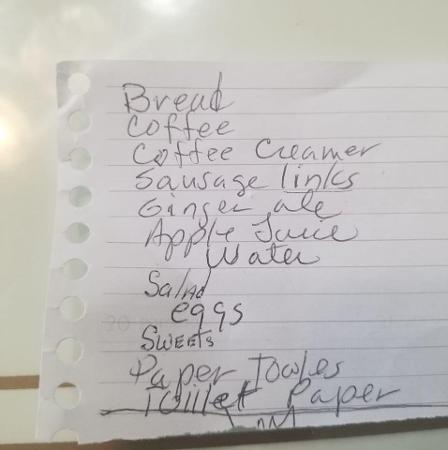 Bread
Coffee
Coffee Creamer
Sausage links
Ginger ale
Apple Juice
Water
Salad
eggs
Sweets
Paper Towles
Toillet Paper